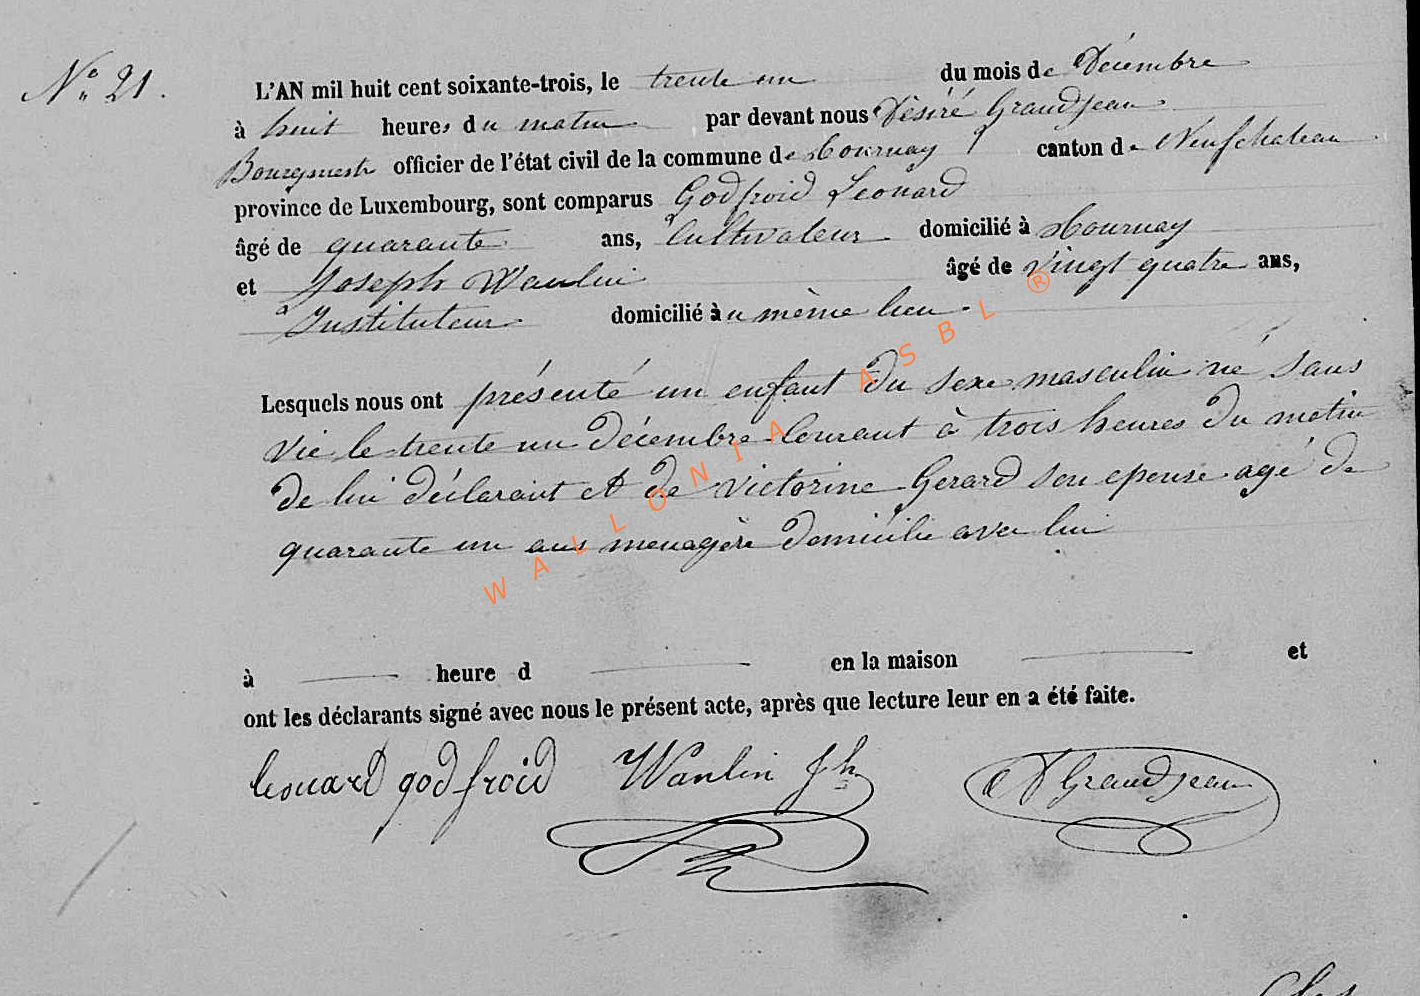 N° 21.
L'AN mil huit cent soixante-trois, le trente un du mois de Décembre
à huit heures du matin par devant nous Désiré Grandjean
Bourgmestre officier de l'état civil de la commune de Tournay canton de Neufchateau
province de Luxembourg, sont comparus Godfroid Leonard
âgé de quarante ans, Cultivateur domicilié à Tournay
et Joseph Wanlin âgé de vingt quatre ans,
Instituteur domicilié au même lieu.
Lesquels nous ont présenté un enfant du sexe masculin né sans
vie le trente un décembre courant à trois heures du matin
de lui déclarant et de Victorine Gerard son epouse agé de
quarante un ans menagère domicilié avec lui
à heure d en la maison et
ont les déclarants signé avec nous le présent acte, après que lecture leur en a été faite.
Leonard godfroid Wanlin Jh D Grandjean
WALLONIA ASBL ®